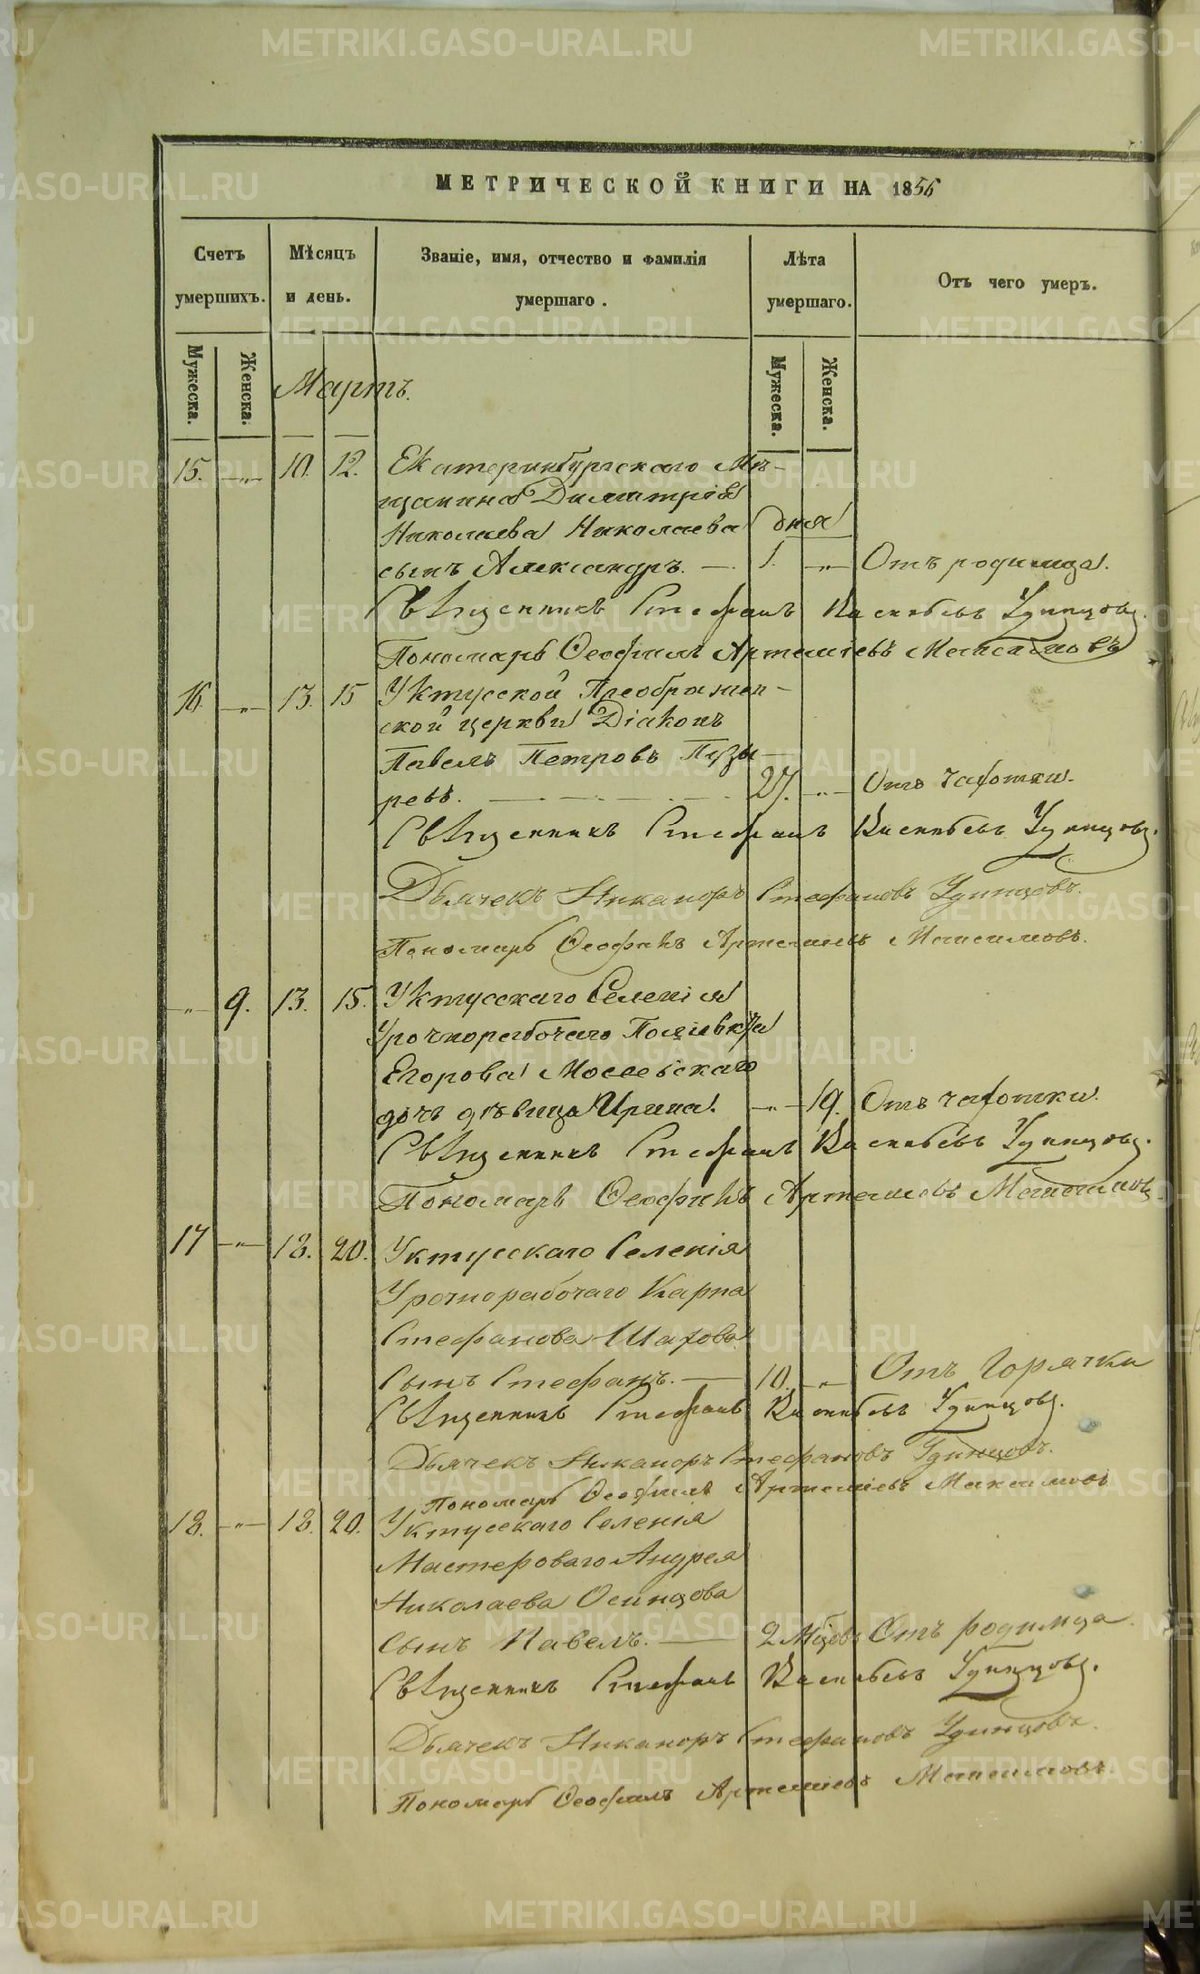 МЕТРИЧЕСКОЙ КНИГИ НА 1856
Счетъ умершихъ.
Мѣсяцъ и день.
Званіе, имя, отчество и фамилія умершаго.
Лѣта умершаго.
Отъ чего умеръ.
Мужеска. Женска.
Мужеска. Женска.
Мартъ.
15. —„— 10. 12. Екатеринбургскаго Мѣ-
щанина Димитрія
Николаева Николаева дня
сынъ Александръ. — 1. —„— Отъ родимца.
Священникъ Стефанъ Васильевъ Удинцовъ.
Пономарь Ѳеофилъ Артемьевъ Максимовъ
16 —„— 13. 15 Уктусской Преображен-
ской церкви Діаконъ
Павелъ Петровъ Пузы-
ревъ. — 27. —„— Отъ чахотки.
Священникъ Стефанъ Васильевъ Удинцовъ.
Дьячекъ Никаноръ Стефановъ Удинцовъ.
Пономарь Ѳеофилъ Артемьевъ Максимовъ.
—„— 9. 13. 15. Уктусскаго Селенія
Урочнорабочаго
Егорова
дочь дѣвица Ирина. —„— 19. Отъ чахотки.
Священникъ Стефанъ Васильевъ Удинцовъ.
Пономарь Ѳеофилъ Артемьевъ Максимовъ
17 —„— 18. 20. Уктусскаго Селенія
Урочнорабочаго Карпа
Стефанова Шахова
Сынъ Стефанъ. — 10. —„— Отъ Горячки
Священникъ Стефанъ Васильевъ Удинцовъ.
Дьячекъ Никаноръ Стефановъ Удинцовъ.
Пономарь Ѳеофилъ Артемьевъ Максимовъ
18. —„— 18. 20. Уктусскаго Селенія
Мастероваго Андрея
Николаева Осинцова
Сынъ Павелъ. — 2 Мѣсцовъ Отъ родимца
Священникъ Стефанъ Васильевъ Удинцовъ.
Дьячекъ Никаноръ Стефановъ Удинцовъ.
Пономарь Ѳеофилъ Артемьевъ Максимовъ.
METRIKI.GASO-URAL.RU